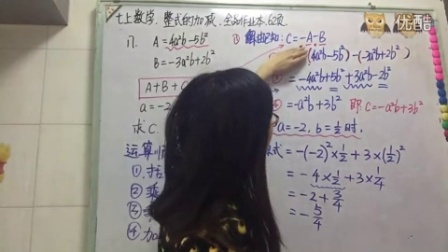 七上数学.整式的加减.
17. A=4a²b-5b²
B=-3a²b+2b²
A+B
a=-2
求C
运算顺
①
②乘
③
④加
C=-A-B
(4a²b-5b²)-(-3a²b+2b²)
=-4a²b+5b²+3a²b-2b²
=-a²b+3b² 即C=-a²b+3b²
a=-2, b=1/2时.
式=-(-2)²×1/2+3×(1/2)²
=-4×1/2+3×1/4
=-2+3/4
=-5/4